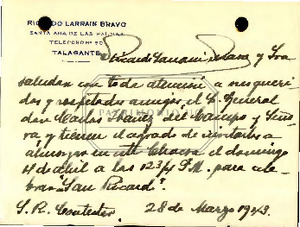 RICARDO LARRAIN BRAVO
SANTA ANA DE LAS PALMAS
TELEFONO Nº 90
TALAGANTE
Ricardo Larrain Bravo y Sra
saludan con toda atención a sus queri
dos y respetados amigos, el Sr. General
don Carlos del Campo y Seño
ra y tienen el agrado de invitarlos a
almorzar en su Chacra el domingo
4 de Abril a las 12 3/4 P.M. para cele
brar "San Ricardo".
S. R. Contestar 28 de Marzo 1943.